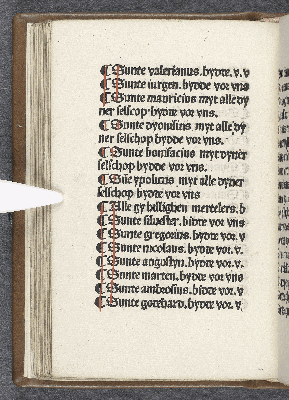 Sunte valerianus. bydde. v. v
Sunte iurgen. bydde vor vns
Sunte mauricius myt alle dy
ner selscop. bydde vor vns.
Sunte dyonisius myt alle dy
ner selschop bydde vor vns.
Sunte bonifacius myt dyner
selschop bydde vor vns.
Sūte ypolitus myt alle dyner
selschop bydde vor vns
Alle gy hillighen mertelers. b
Sunte siluester. bidde vor vns
Sunte gregorius. bydde vor. v
Sunte nicolaus. bydde vor. v
Sunte augustyn. bydde vor. v
Sunte marten. bydde vor vns
Sunte ambrosius. bidde vor. v
Sunte godehard. bydde vor. v